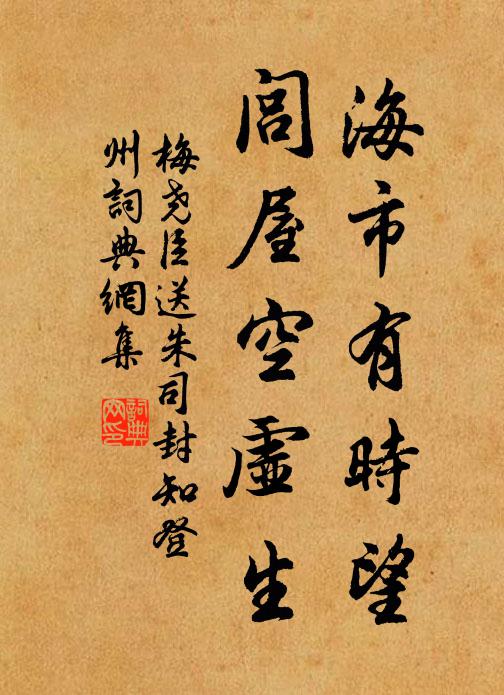 海市有時望
閭屋空虛生
梅堯臣送朱司封知登
州詞典網集
詞典
网印